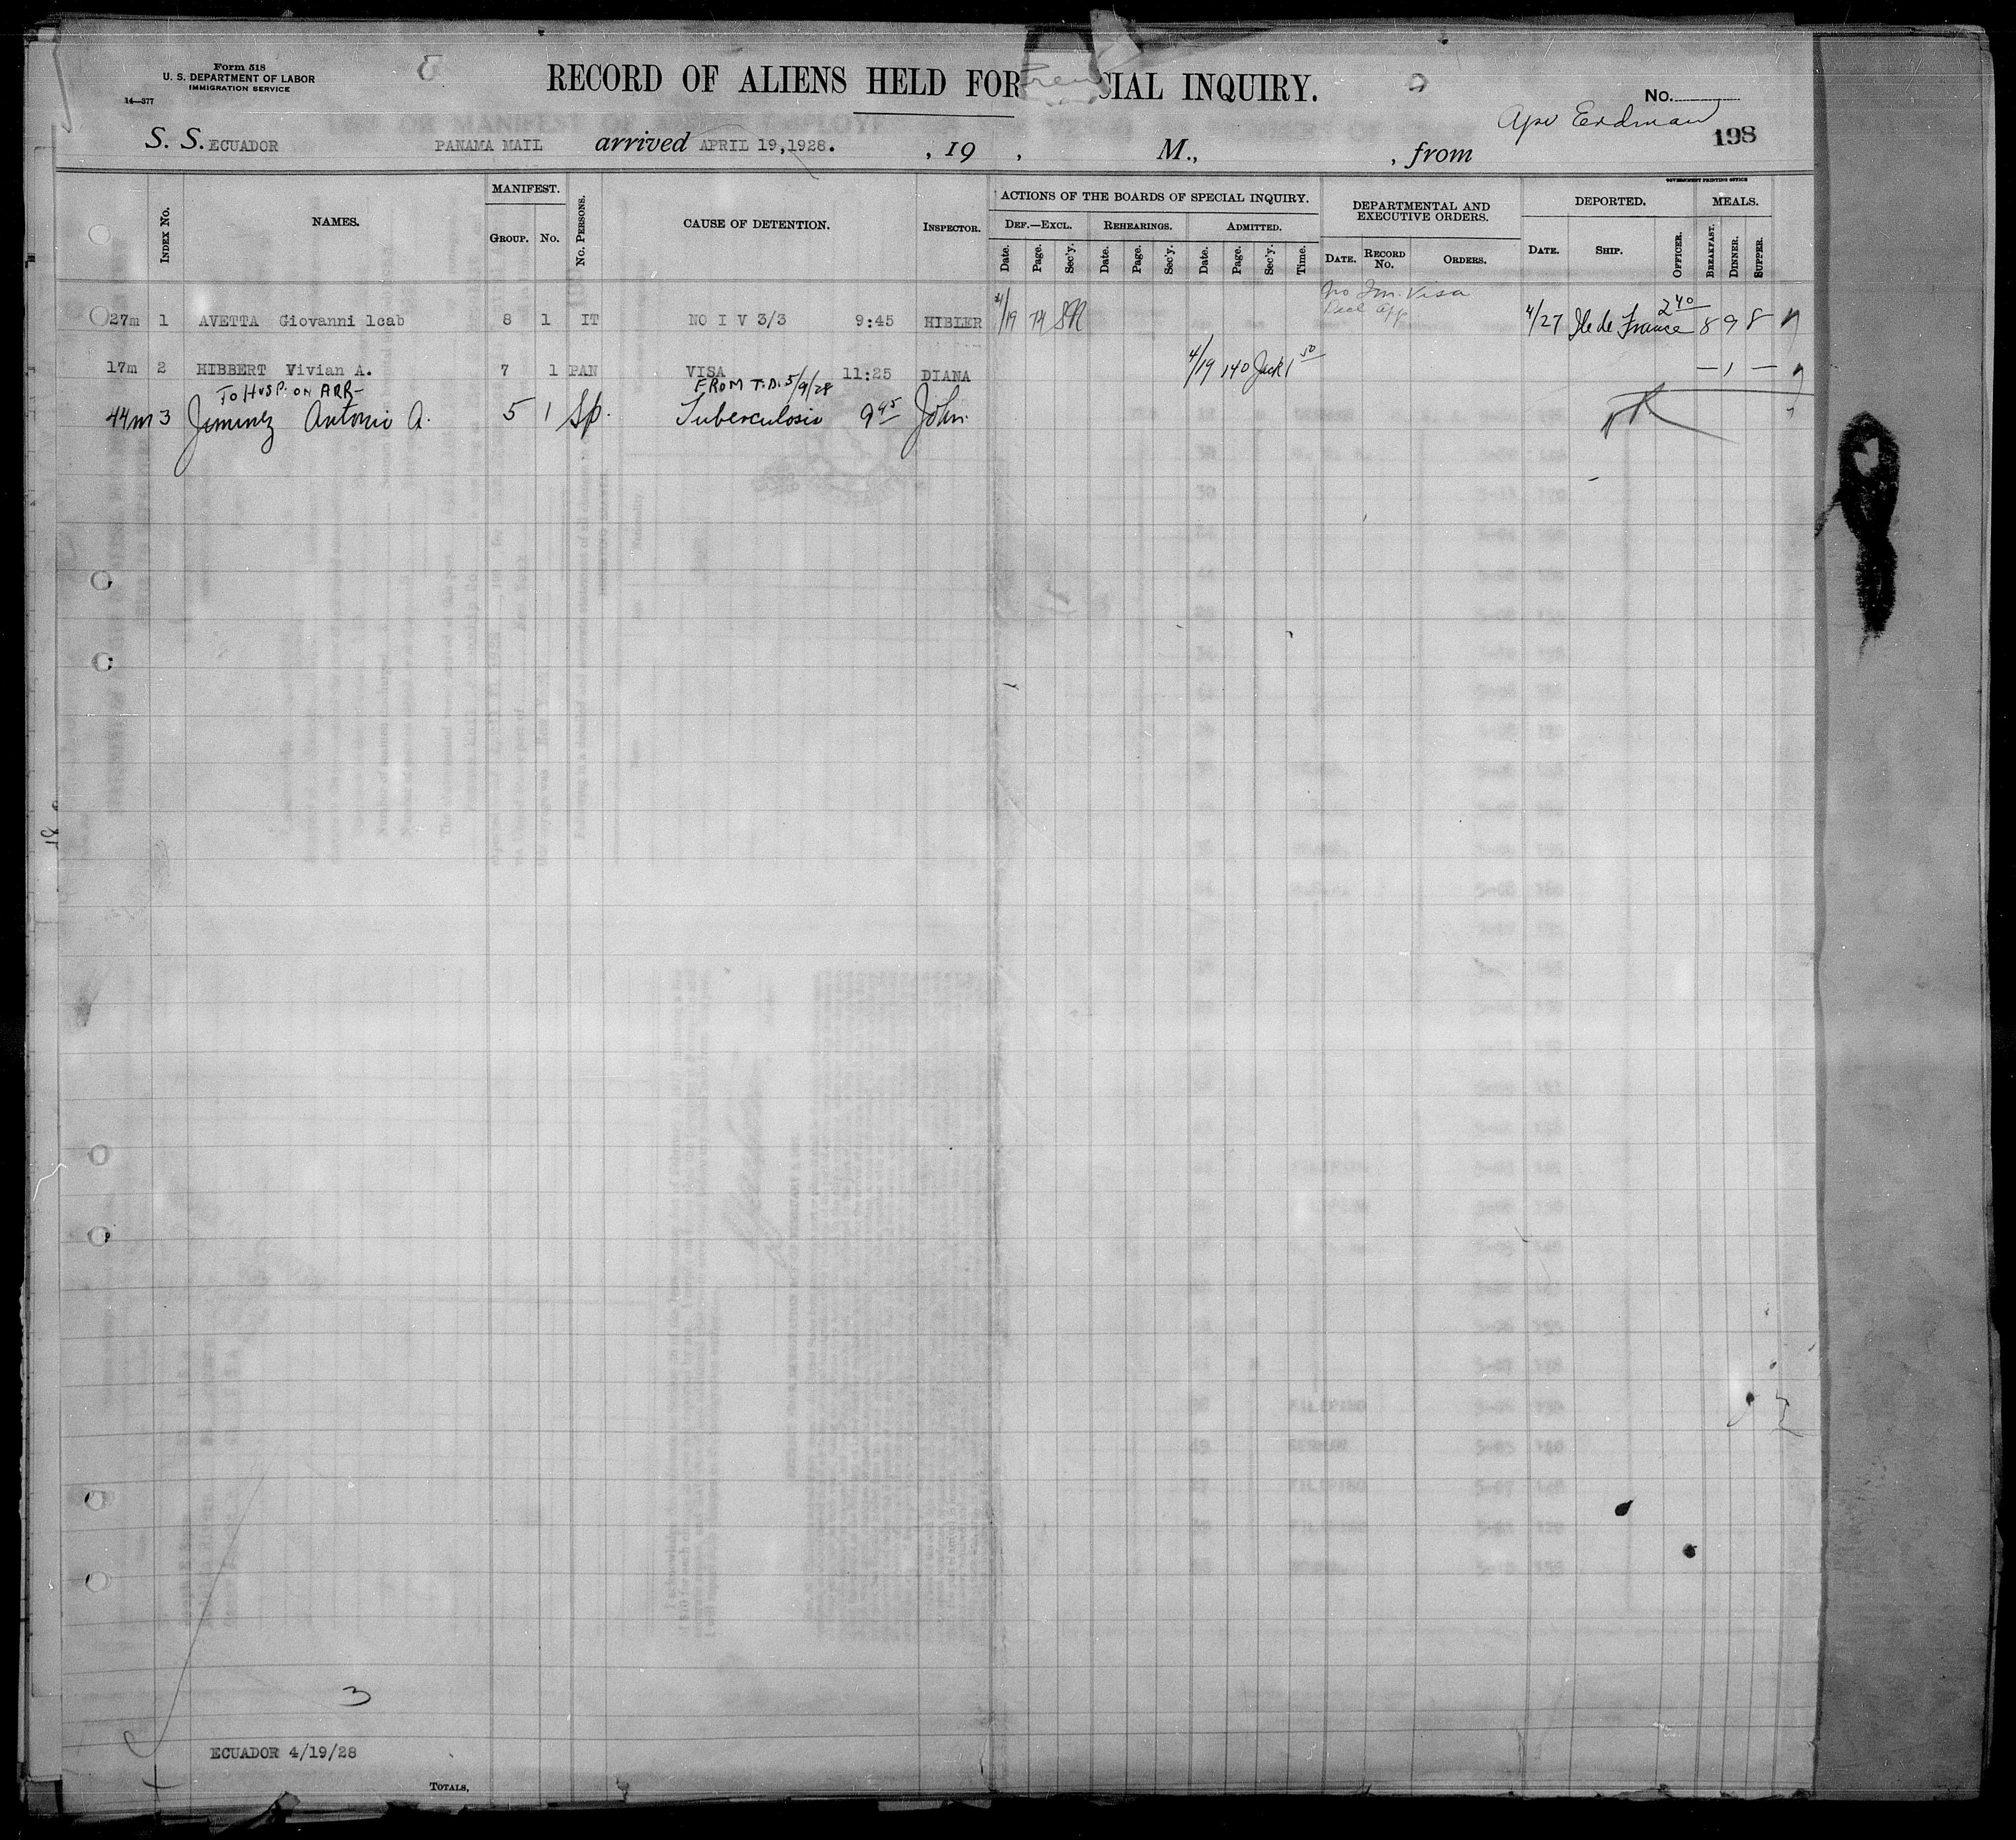 Form 518
U. S. DEPARTMENT OF LABOR
IMMIGRATION SERVICE
14—377
RECORD OF ALIENS HELD FOR CIAL INQUIRY.
No.
198
S. S. ECUADOR PANAMA MAIL arrived APRIL 19,1928. , 19 , M., , from
GOVERNMENT PRINTING OFFICE
INDEX NO. NAMES. MANIFEST. GROUP. NO. NO. PERSONS. CAUSE OF DETENTION. INSPECTOR. ACTIONS OF THE BOARDS OF SPECIAL INQUIRY. DEPARTMENTAL AND EXECUTIVE ORDERS. DEPORTED. MEALS.
DEF.—EXCL. REHEARINGS. ADMITTED.
Date. Page. Sec'y. Date. Page. Sec'y. Date. Page. Sec'y. Time. DATE. RECORD NO. ORDERS. DATE. SHIP. OFFICER. BREAKFAST. DINNER. SUPPER.
No Im. Visa
27m 1 AVETTA Giovanni lcab 8 1 IT NO I V 3/3 9:45 HIBLER 4/19 74 SM 4/27 Ile de France 2 40 8 9 8
17m 2 HIBBERT Vivian A. 7 1 PAN VISA 11:25 DIANA 4/19 140 Jack 1 50 — 1 —
TO HOSP. ON ARR- FROM T.D. 5/9/28
44m 3 Jimenez Antonio A. 5 1 Sp. Tuberculosis 9 45 John.
3
ECUADOR 4/19/28
TOTALS,